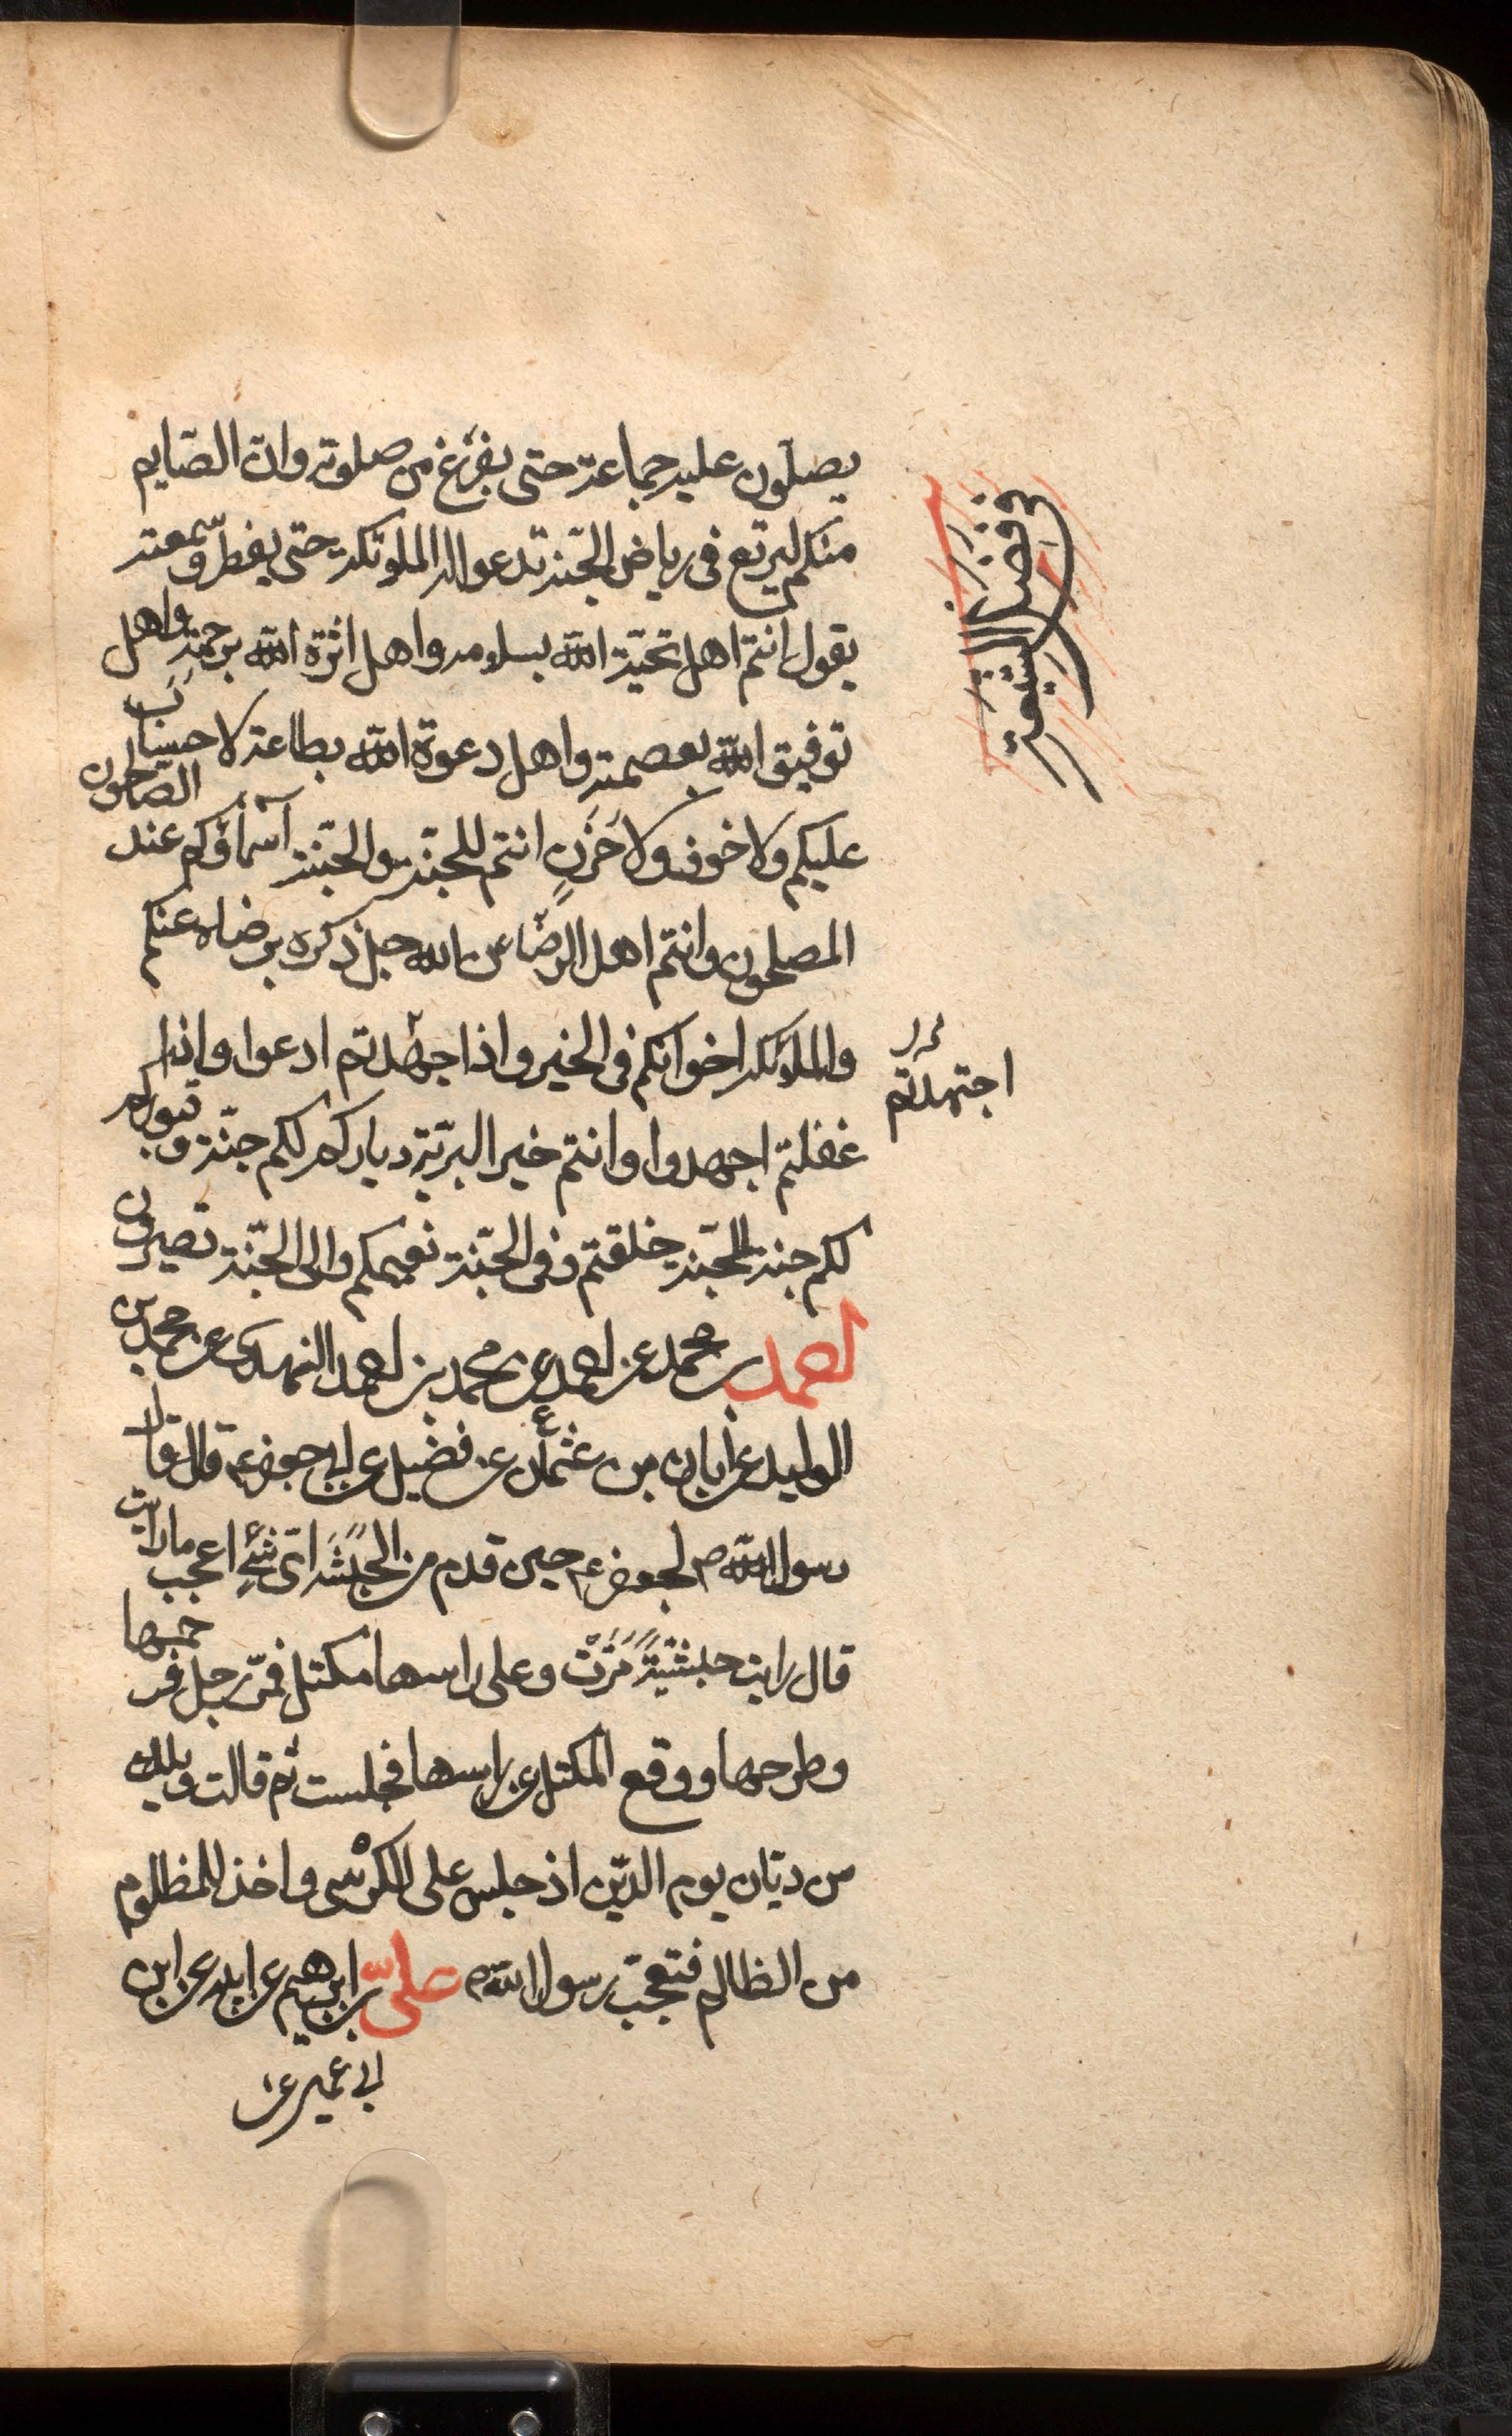 يصلّون عليه جماعة حتى يفرغ من صلوته وانّ الصّايم
منكم ليرتع في رياض الجّنة تدعوا له الملئكة حتى يفطر وسمعته
يقول انتم اهل تحيّة الله بسلامه واهل اثرة الله برحمته واهل
توفيق الله بعصمته واهل دعوة الله بطاعته لا حساب
عليكم ولا خوف ولا حَزَن انتم للجّنة والجّنة لكم أسمآؤكم عندنا الصّالحون
المصلحون وانتم اهل الرضّا عن الله جل ذكره برضاه عنكم
والملئكة اخوانكم في الخير واذا اجهدتم ادعوا واذا
غفلتم اجهدوا وانتم خير البريّة دياركم لكم جنّة وقبوركم
لكم جنة للجّنة خلقتم وفي الجّنة نعيمكم والى الجّنة تصيرون
احمد بن محمد عن احمد عن محمد بن احمد النهدى عن محمد بن
الوليد عن أبان بن عثمان عن فضيل عن ابي جعفر ع قال قال
رسول الله ص لجعفر ع حين قدم من الحَبَشَة اىّ شئ اعجب ما رايت
قال رايت حبشيَّةً مَرَّتْ وعلى راسها مكتل فمرّ رجل فزحمها
وطرحها ووقع المكتل عن راسها فجلست ثم قالت ويلك
من ديّان يوم الدّين اذ جلس على الكرسى واخذ للمظلوم
من الظالم فتعجّب رسول الله ص علىّ بن ابرهيم عن ابيه عن ابن
ابى عمير عن
في فضل الشيعة
اجتهدتم